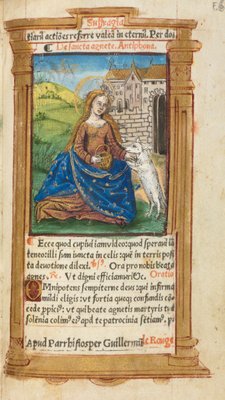 Suffragia
nāɜ actiōes referre valeā in eternū. Per do
De sancta agnete. Antiphona.
Ecce quod cupiui iam video: quod speraui iā
teneo: illi sum iuncta in celis: quē in terris posi
ta deuotione dilexi. Ora pro nobis beata
agnes. Ut digni efficiamur ⁊c. Oratio
Omnipotens sempiterne deus qui infirma
mūdi eligis: vt fortia queqȝ confundas: cō
cede ppiciꝰ: vt qui beate agnetis martyris tue
solēnia colimꝰ: eiꝰ apd te patrocinia sētiam⁹. p
Apud Parrhisios per Guillermū le Rouge